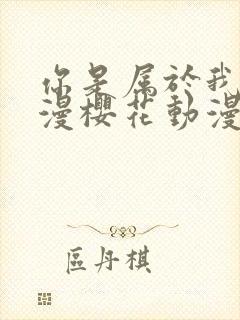 你是属於我
漫櫻花動漫
區丹棋